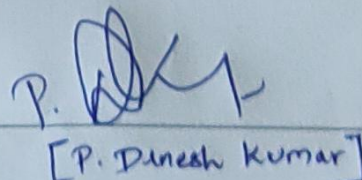 P.
[P. Dinesh Kumar]